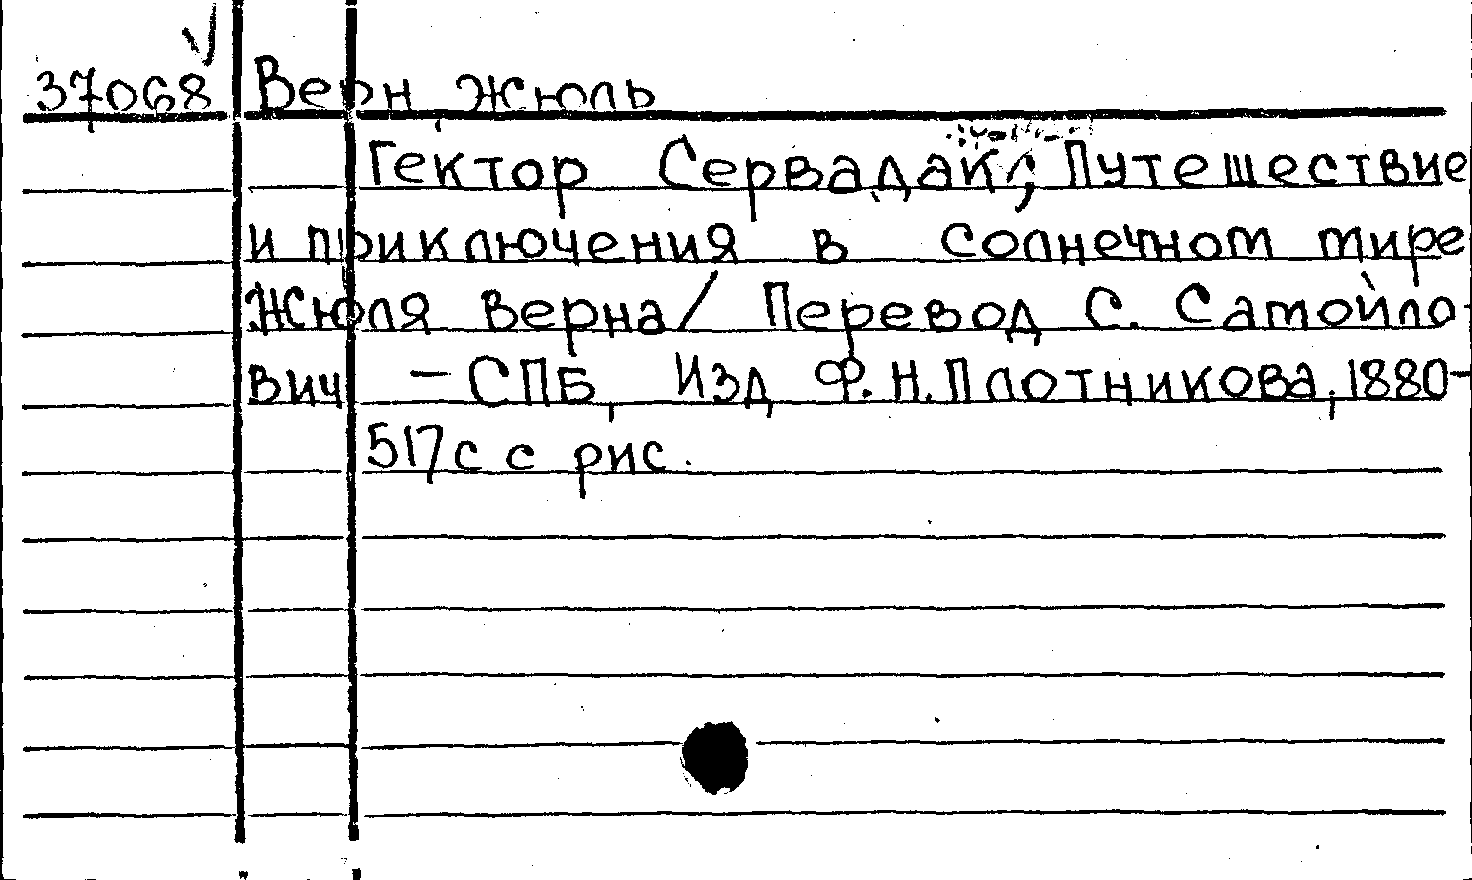 37068 Верн, Жюль
Гектор Сервадак; Путешествие
и приключения в солнечном мире
Жюля Верна/ Перевод С. Самойло-
вич - СПБ, Изд Ф.Н.Плотникова, 1880-
517с с рис.